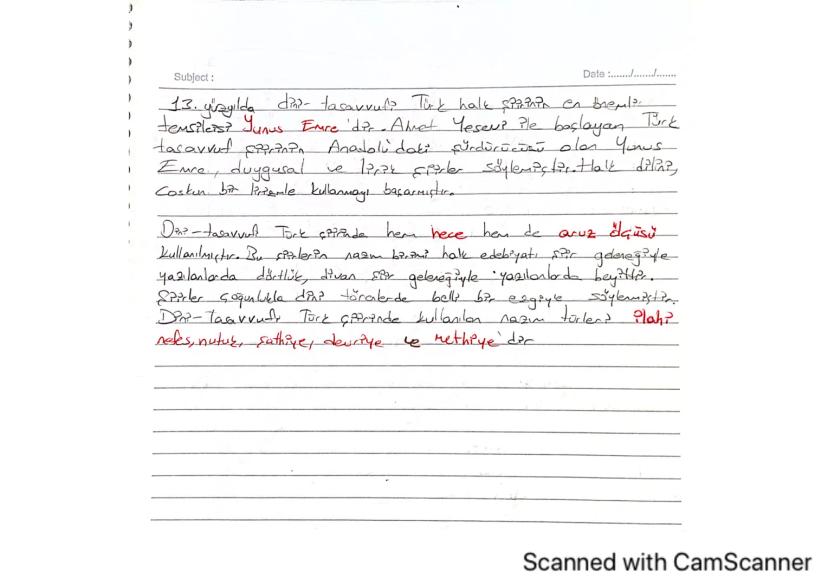 Subject :
Date :......./......./.......
13. yüzyılda dini-tasavvufi Türk halk şiirinin en önemli
temsilcisi Yunus Emre'dir. Ahmet Yesevi ile başlayan Türk
tasavvuf şiirinin Anadolu'daki sürdürücüsü olan Yunus
Emre, duygusal ve lirik şiirler söylemiştir. Halk dilini,
Coşkun bir lirizmle kullanmayı başarmıştır.
Dini-tasavvufi Türk şiirinde hem hece hem de aruz ölçüsü
kullanılmıştır. Bu şiirlerin nazım birimi halk edebiyatı şiir geleneğiyle
yazılanlarda dörtlük, divan şiir geleneğiyle yazılanlarda beyittir.
Şiirler çoğunlukla dini törenlerde belli bir ezgiyle söylenmiştir.
Dini-Tasavvufi Türk şiirinde kullanılan nazım türleri ilahi
nefes, nutuk, şathiye, devriye ve methiye'dir
Scanned with CamScanner